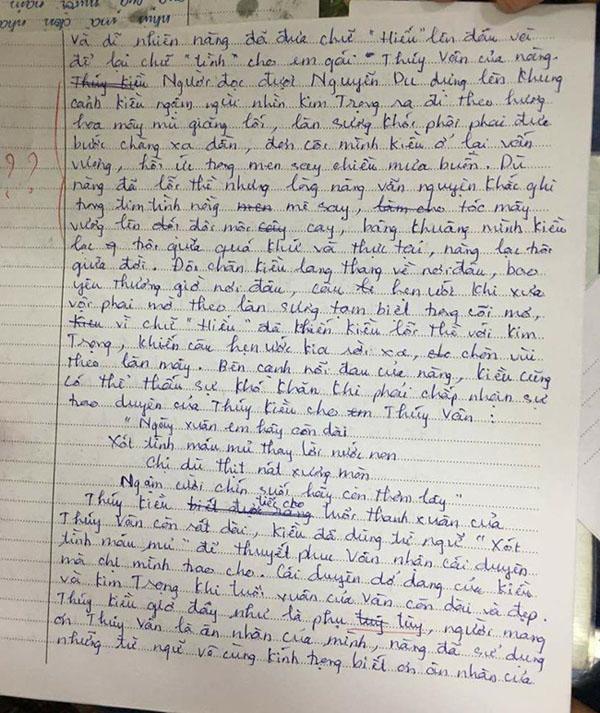 và dĩ nhiên nàng đã đưa chữ "Hiếu" lên đầu và
để lại chữ "tình" cho em gái - Thúy Vân của nàng.
Thúy Kiều Người đọc được Nguyễn Du dựng lên khung
cảnh kiều ngậm ngùi nhìn kim Trọng ra đi theo hương
hoa mây mù giăng lối, làn sương khói phôi phai đưa
bước chàng xa dần, đơn côi mình kiều ở lại vấn
vương, hồi ức trong men say chiều mưa buồn. Dù
nàng đã lỗi thề nhưng lòng nàng vẫn nguyên khắc ghi
trong tim tình nồng men mê say, làm cho tóc mây
vương lên đôi mắt cay, bâng khuâng mình kiều
lạc trôi giữa quá khứ và thực tại, nàng lạc trôi
giữa đời. Đôi chân kiều lang thang về nơi đâu, bao
yêu thương giờ nơi đâu, câu hẹn ước khi xưa
vội phai mờ theo làn sương tạm biệt trong cõi mơ,
kiều vì chữ "Hiếu" đã khiến kiều lỗi thề với kim
Trọng, khiến câu hẹn ước kia rời xa, chôn vùi
theo làn mây. Bên cạnh nỗi đau của nàng, kiều cũng
có thể thấu sự khó khăn khi phải chấp nhận sự
trao duyên của Thúy kiều cho em Thúy Vân :
"Ngày xuân em hãy còn dài
Xót tình máu mủ thay lời nước non
Chị dù thịt nát xương mòn
Ngậm cười chín suối hãy còn thơm lây"
Thúy kiều biết được rằng tiếc cho tuổi thanh xuân của
Thúy Vân còn rất dài, kiều đã dùng từ ngữ "Xót
tình máu mủ" để thuyết phục Vân nhận cái duyên
mà chị mình trao cho. Cái duyên dở dang của kiều
và kim Trọng khi tuổi xuân của Vân còn dài và đẹp.
Thúy kiều giờ đây như là phụ tuỳ tùy, người mang
ơn Thúy Vân là ân nhân của mình, nàng đã sử dụng
những từ ngữ vô cùng kính trọng biết ơn ân nhân của